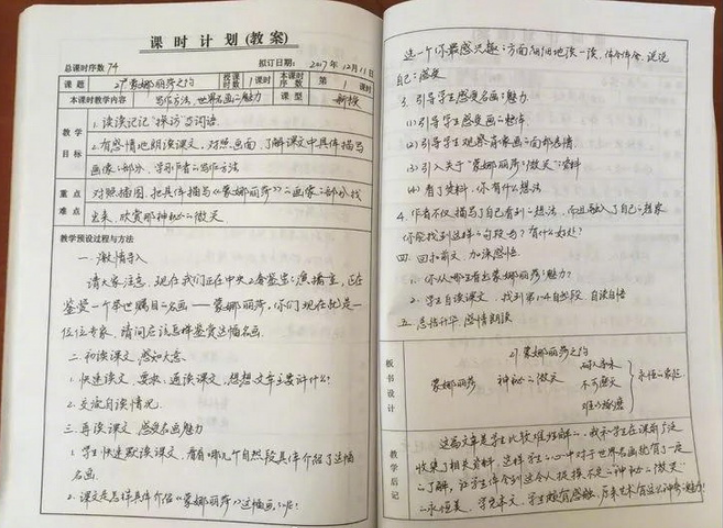 课时计划(教案)
总课时序数 74 拟订日期: 2017年12月11日
课题 27 蒙娜丽莎之约 授课时数 1课时 本课时序数 第1课时
本课时教学内容 写作方法,世界名画的魅力 课型 新授
教学目标
1.读读记记"探访"等词语.
2.有感情地朗读课文,对照画面,了解课文中具体描写
画像的部分,学习作者的写作方法
重点难点
对照插图,把具体描写《蒙娜丽莎》的画像的部分找
出来,欣赏那神秘的微笑
教学预设过程与方法
一.激情导入
请大家注意,现在我们正在中央2套鉴宝的演播室,正在
鉴赏一个举世瞩目的名画——蒙娜丽莎.你们现在就是一
位位专家,请问应该怎样鉴赏这幅名画.
二.初读课文,感知大意
1.快速读文,要求:通读课文,想想文章主要讲什么?
2.交流自读情况.
三.再读课文,感受名画魅力
1.学生快速默读课文,看有哪几个自然段具体介绍了这幅
名画.
2.课文是怎样具体介绍《蒙娜丽莎》这幅画的呢?
选一个你最感兴趣的方面细细地读一读,体会体会,说说
自己的感受
3.引导学生感受名画的魅力.
(1)引导学生感受画的整体.
(2)引导学生观察肖像画的面部表情.
(3)引入关于"蒙娜丽莎的微笑"的资料
(4)看了资料,你有什么想法
4.作者不仅描写了自己看到的想法,而且融入了自己的想象
你能找到这样的句段吗?有什么好处?
四 回扣前文,加深感悟.
1.你从哪里看出蒙娜丽莎的魅力?
2.学生自读课文,找到第八自然段,自读自悟
五.总结升华,感情朗读
板书设计
27 蒙娜丽莎之约
蒙娜丽莎 神秘的微笑
耐人寻味
不可磨灭
难以捉摸
永恒的
教学后记
这篇文章是学生比较难理解的,我和学生在课前广泛
收集了相关资料,这样学生的心中对于世界名画就有了一定
的了解,让学生体会到这令人捉摸不定的"神秘的微笑"
的永恒美.学完本文,学生颇有感触,原来艺术有这么神奇的魅力!